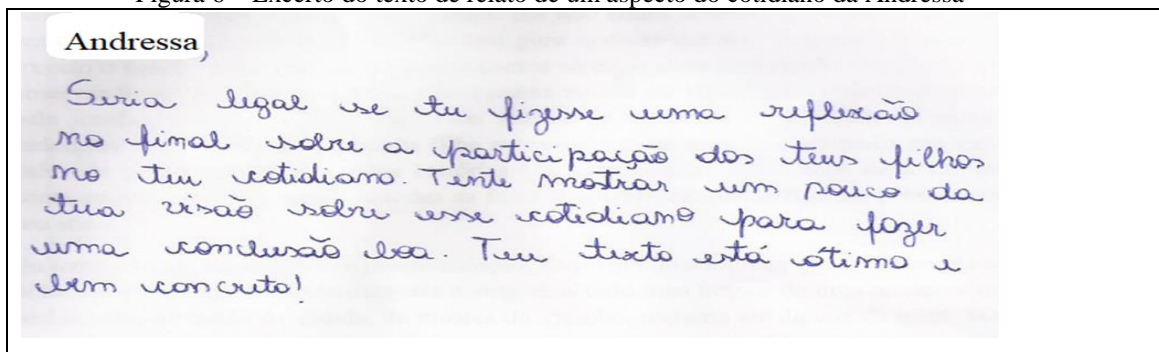 Figura 6 – Excerto do texto de relato de um aspecto do cotidiano da Andressa
Andressa,
Seria legal se tu fizesse uma reflexão
no final sobre a participação dos teus filhos
no teu cotidiano. Tente mostrar um pouco da
tua visão sobre esse cotidiano para fazer
uma conclusão boa. Teu texto está ótimo e
bem concreto!